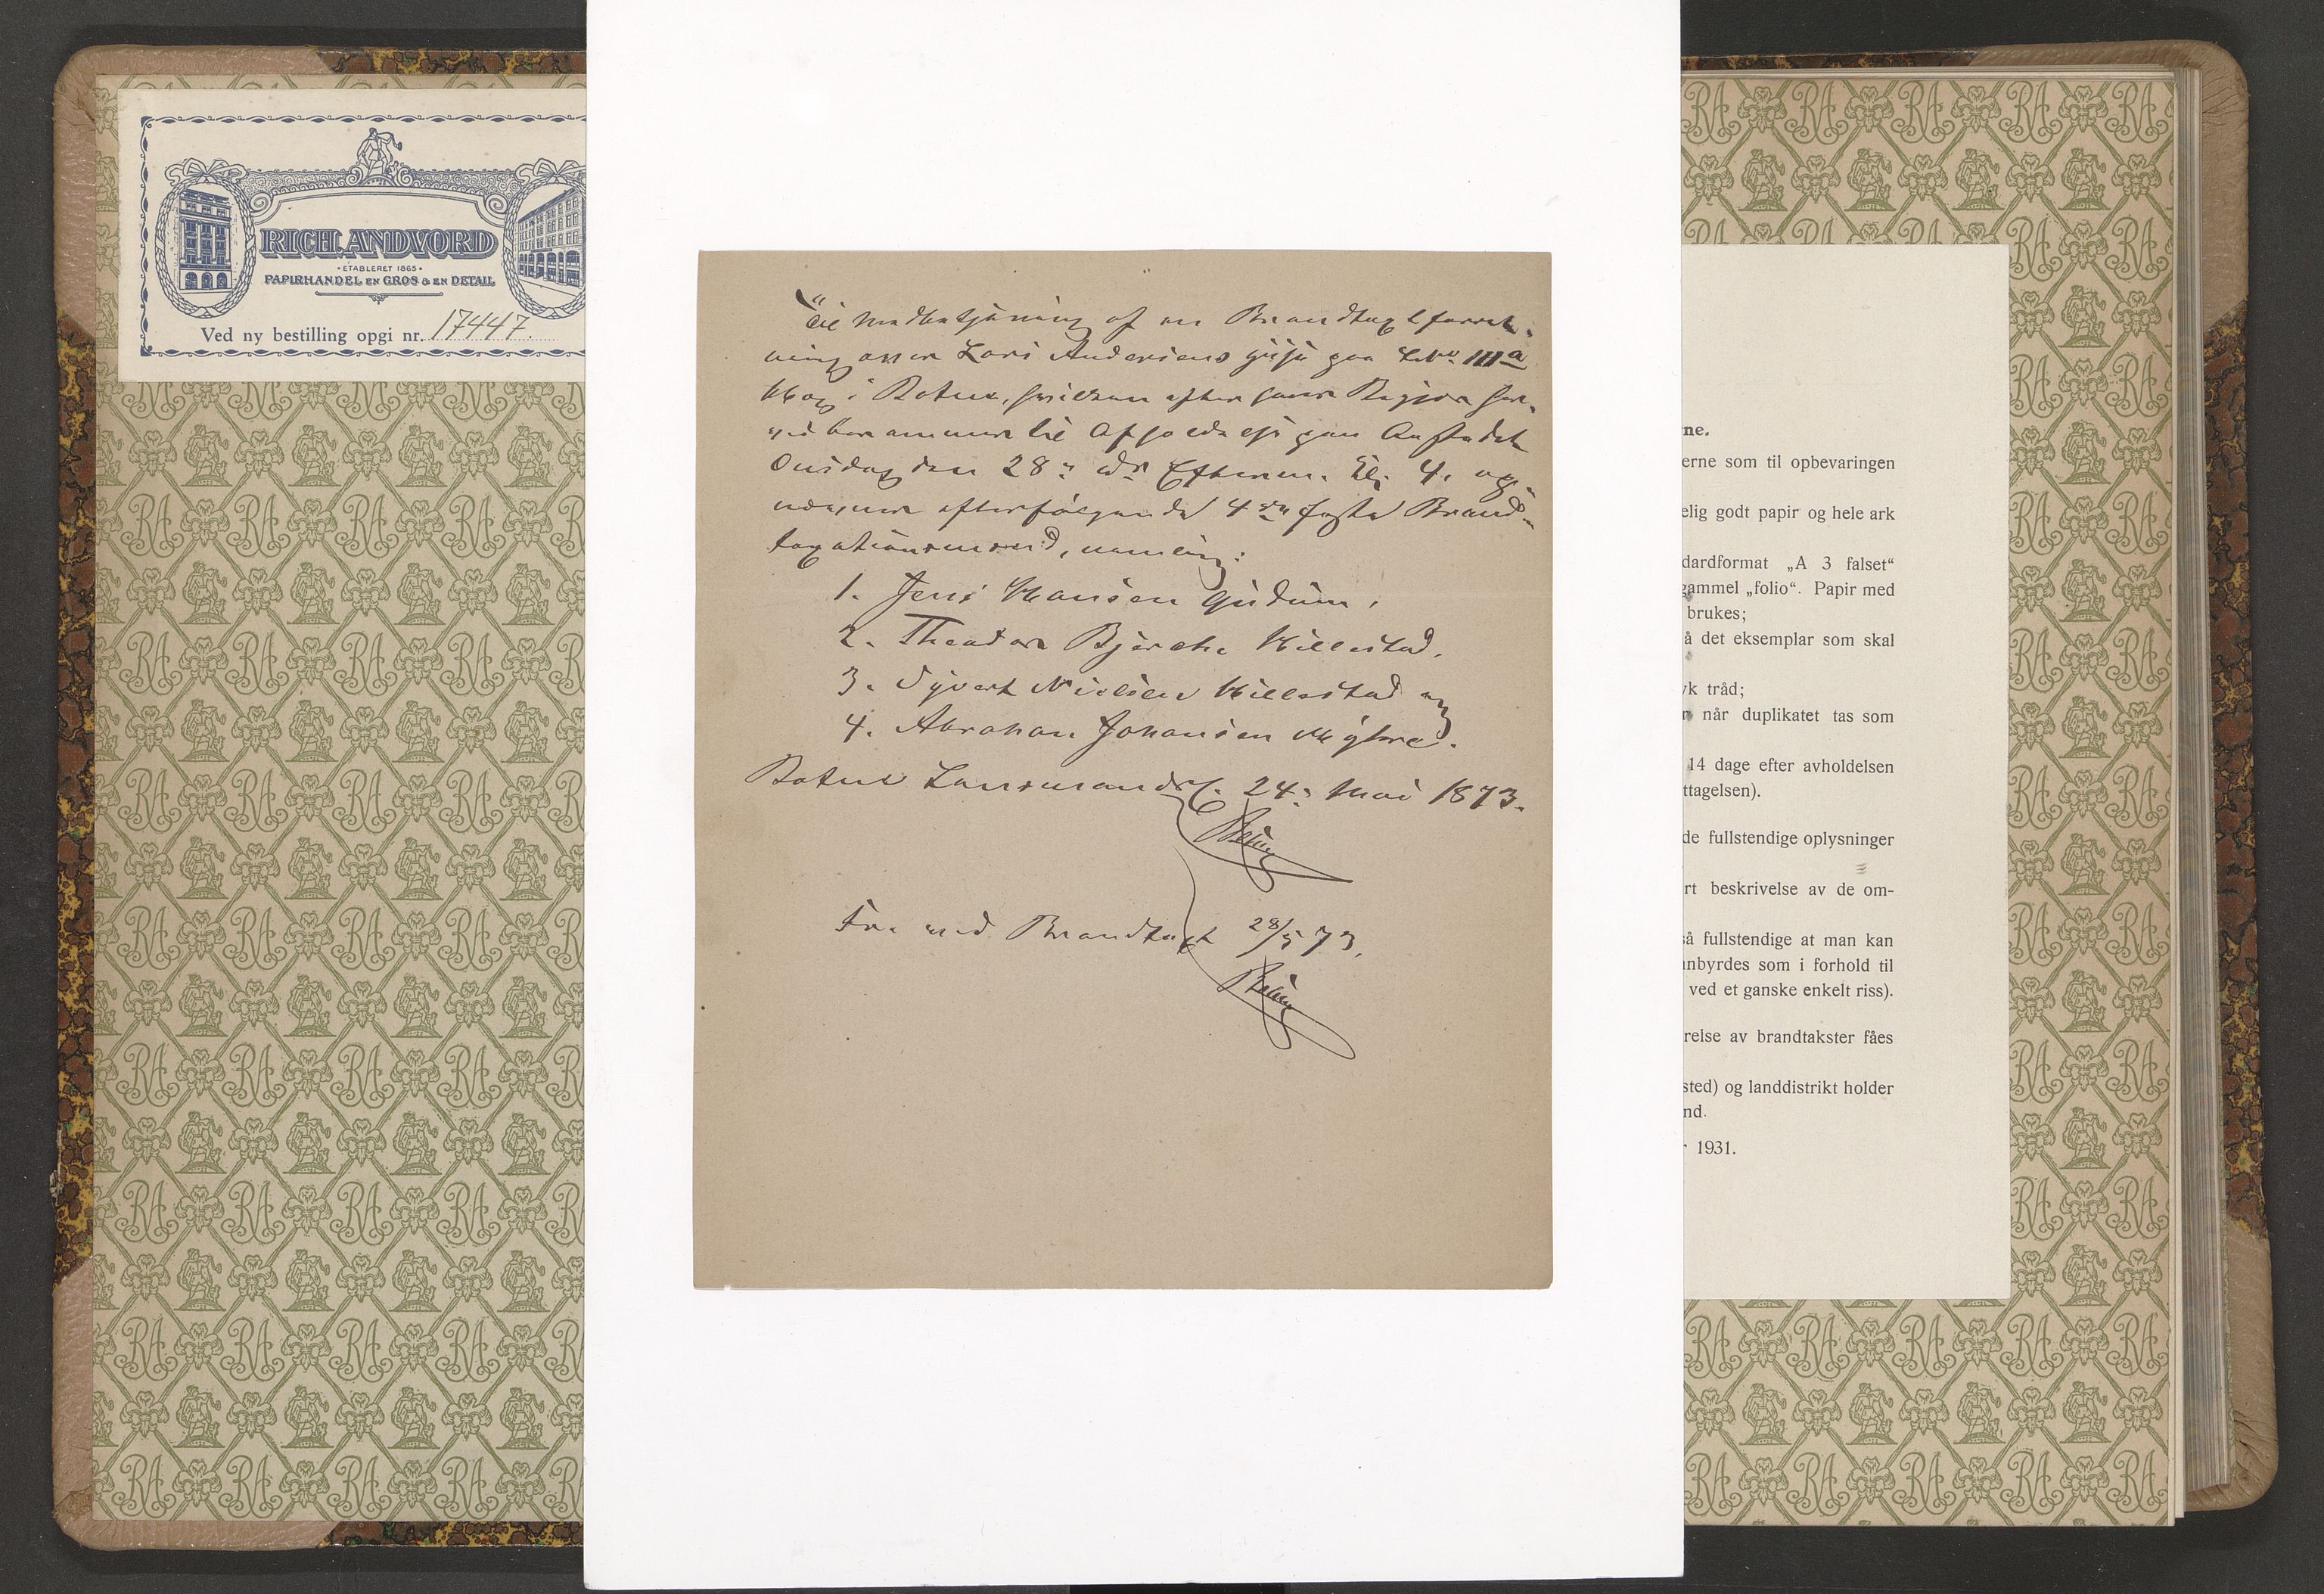 RICH. ANDVORD
• ETABLERET 1865 •
PAPIRHANDEL EN GROS & EN DETAIL
Ved ny bestilling opgi nr. 17447.
Til Medbetjening af en Brandtaxtforret-
ning over Lars Andersens paa LNo. 111a
i Botne, hvilken efter
berammer til Afholdelse paa Aastedet
Onsdag den 28: ds Efterm. Kl. 4, op-
nævner efterfølgende 4re faste Brand-
taxationsmænd, nemlig:
1. Jens Hansen Gudum,
2. Theodor Bjerche Hillestad,
3. Syvert Nielsen Hillestad og
4. Abraham Johansen Myhre.
Botne Lensmandsc. 24: Mai 1873.
Fr. ved Brandtaxt 28/5 73.
ne.
erne som til opbevaringen
elig godt papir og hele ark
dardformat „A 3 falset“
gammel „folio“. Papir med
brukes;
å det eksemplar som skal
yk tråd;
når duplikatet tas som
14 dage efter avholdelsen
ttagelsen).
de fullstendige oplysninger
rt beskrivelse av de om-
så fullstendige at man kan
nbyrdes som i forhold til
ved et ganske enkelt riss).
relse av brandtakster fåes
sted) og landdistrikt holder
nd.
r 1931.